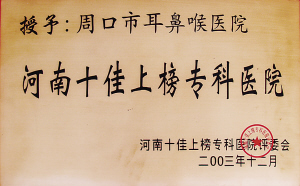 授予：周口市耳鼻喉医院
河南十佳上榜专科医院
河南十佳上榜专科医院评委会
二00三年十二月